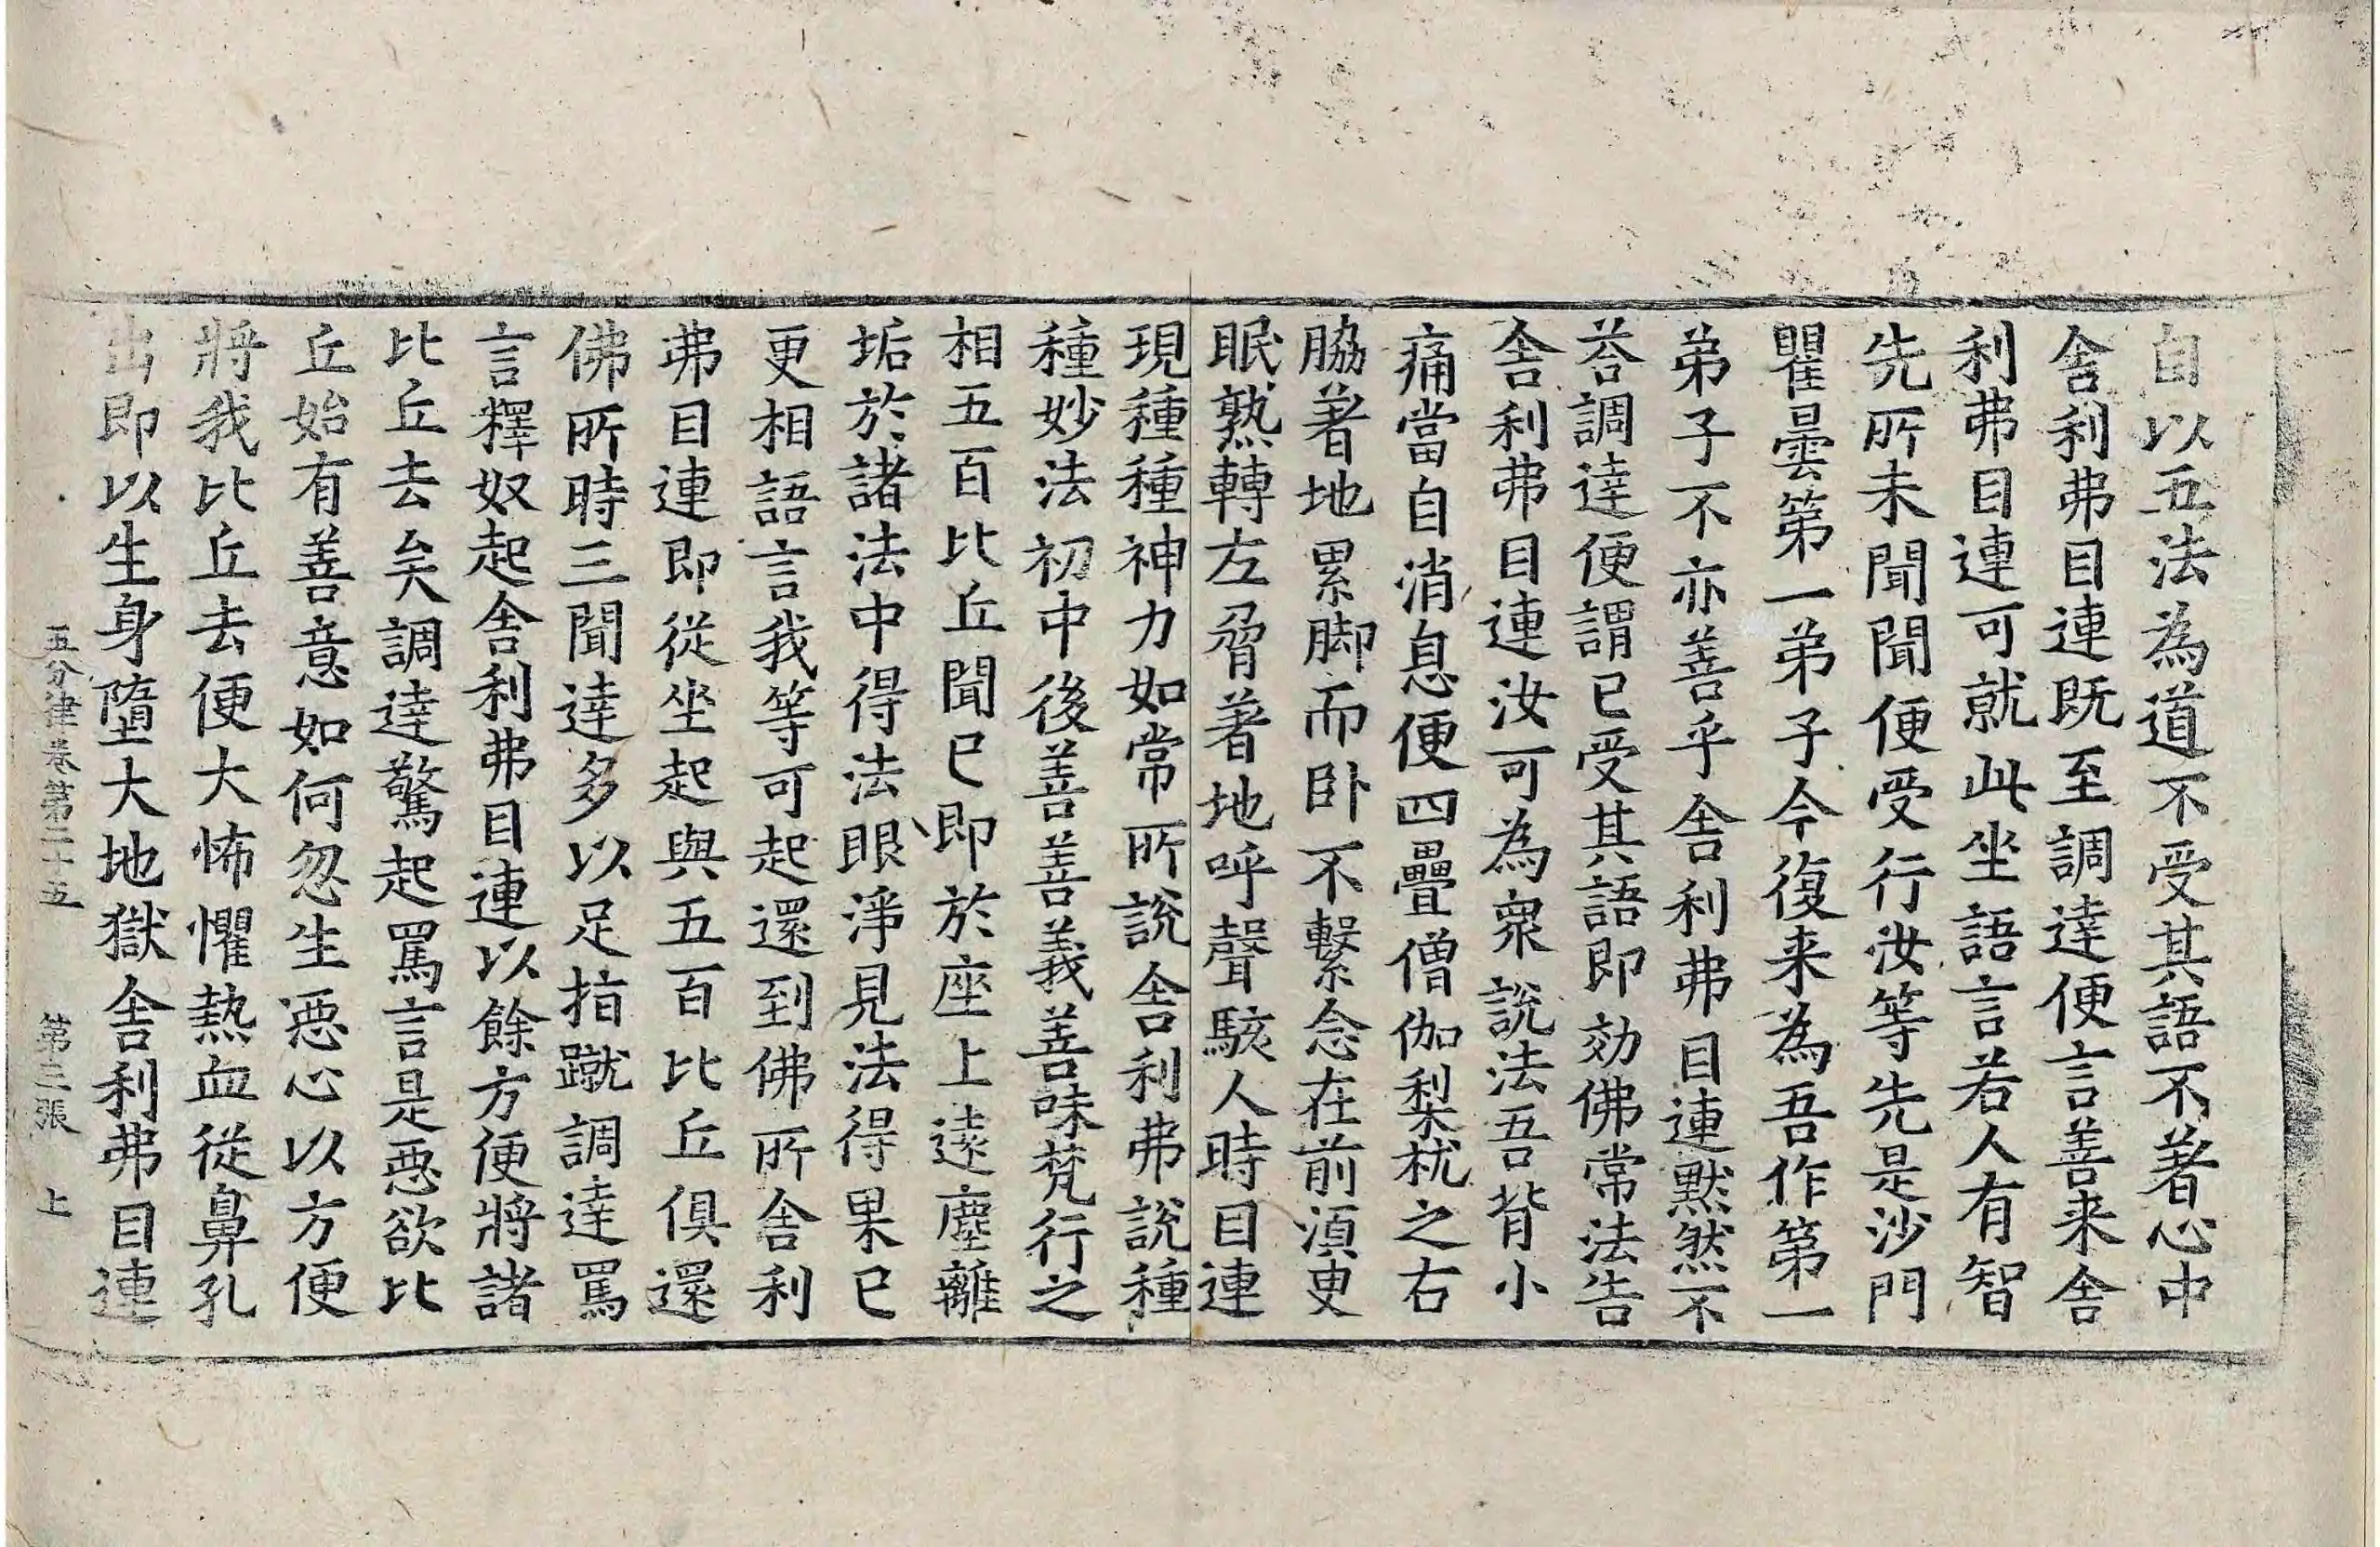 自以五法為道不受其語不著心中
舍利弗目連既至調達便言善来舍
利弗目連可就此坐語言若人有智
先所未聞聞便受行汝等先是沙門
瞿曇第一弟子今復来為吾作第一
弟子不亦善乎舍利弗目連默然不
荅調達便謂已受其語即効佛常法告
舍利弗目連汝可為衆說法吾背小
痛當自消息便四疊僧伽梨枕之右
脇著地累脚而卧不繫念在前須臾
眠熟轉左脅著地呼聲駭人時目連
現種種神力如常所說舍利弗說種
種妙法初中後善善義善味梵行之
相五百比丘聞已即於座上遠塵離
垢於諸法中得法眼淨見法得果已
更相語言我等可起還到佛所舍利
弗目連即從坐起與五百比丘俱還
佛所時三聞達多以足指蹴調達罵
言釋奴起舍利弗目連以餘方便將諸
比丘去矣調達驚起罵言是惡欲比
丘始有善意如何忽生惡心以方便
將我比丘去便大怖懼熱血從鼻孔
出即以生身墮大地獄舍利弗目連
五分律卷第二十五 第三張 上